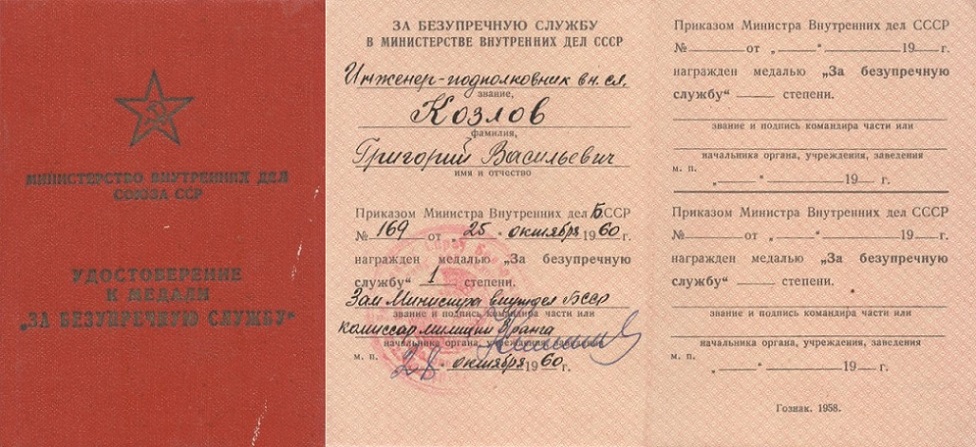 МИНИСТЕРСТВО ВНУТРЕННИХ ДЕЛ
СОЮЗА ССР
УДОСТОВЕРЕНИЕ
К МЕДАЛИ
„ЗА БЕЗУПРЕЧНУЮ СЛУЖБУ“
ЗА БЕЗУПРЕЧНУЮ СЛУЖБУ
В МИНИСТЕРСТВЕ ВНУТРЕННИХ ДЕЛ СССР
Инженер-подполковник вн. сл.
звание,
Козлов
фамилия,
Григорий Васильевич
имя и отчество
Приказом Министра Внутренних дел БССР
№ 169 от „25“ октября 1960 г.
награжден медалью „За безупречную
службу“ 1 степени.
Зам Министра внутдел БССР
звание и подпись командира части или
комиссар милиции 3 ранга
начальника органа, учреждения, заведения
м. п. 28 октября 1960 г.
Приказом Министра Внутренних дел СССР
№ от „ “ 19 г.
награжден медалью „За безупречную
службу“ степени.
звание и подпись командира части или
начальника органа, учреждения, заведения
м. п.
„ “ 19 г.
Приказом Министра Внутренних дел СССР
№ от „ “ 19 г.
награжден медалью „За безупречную
службу“ степени.
звание и подпись командира части или
начальника органа, учреждения, заведения
м. п.
„ “ 19 г.
Гознак. 1958.